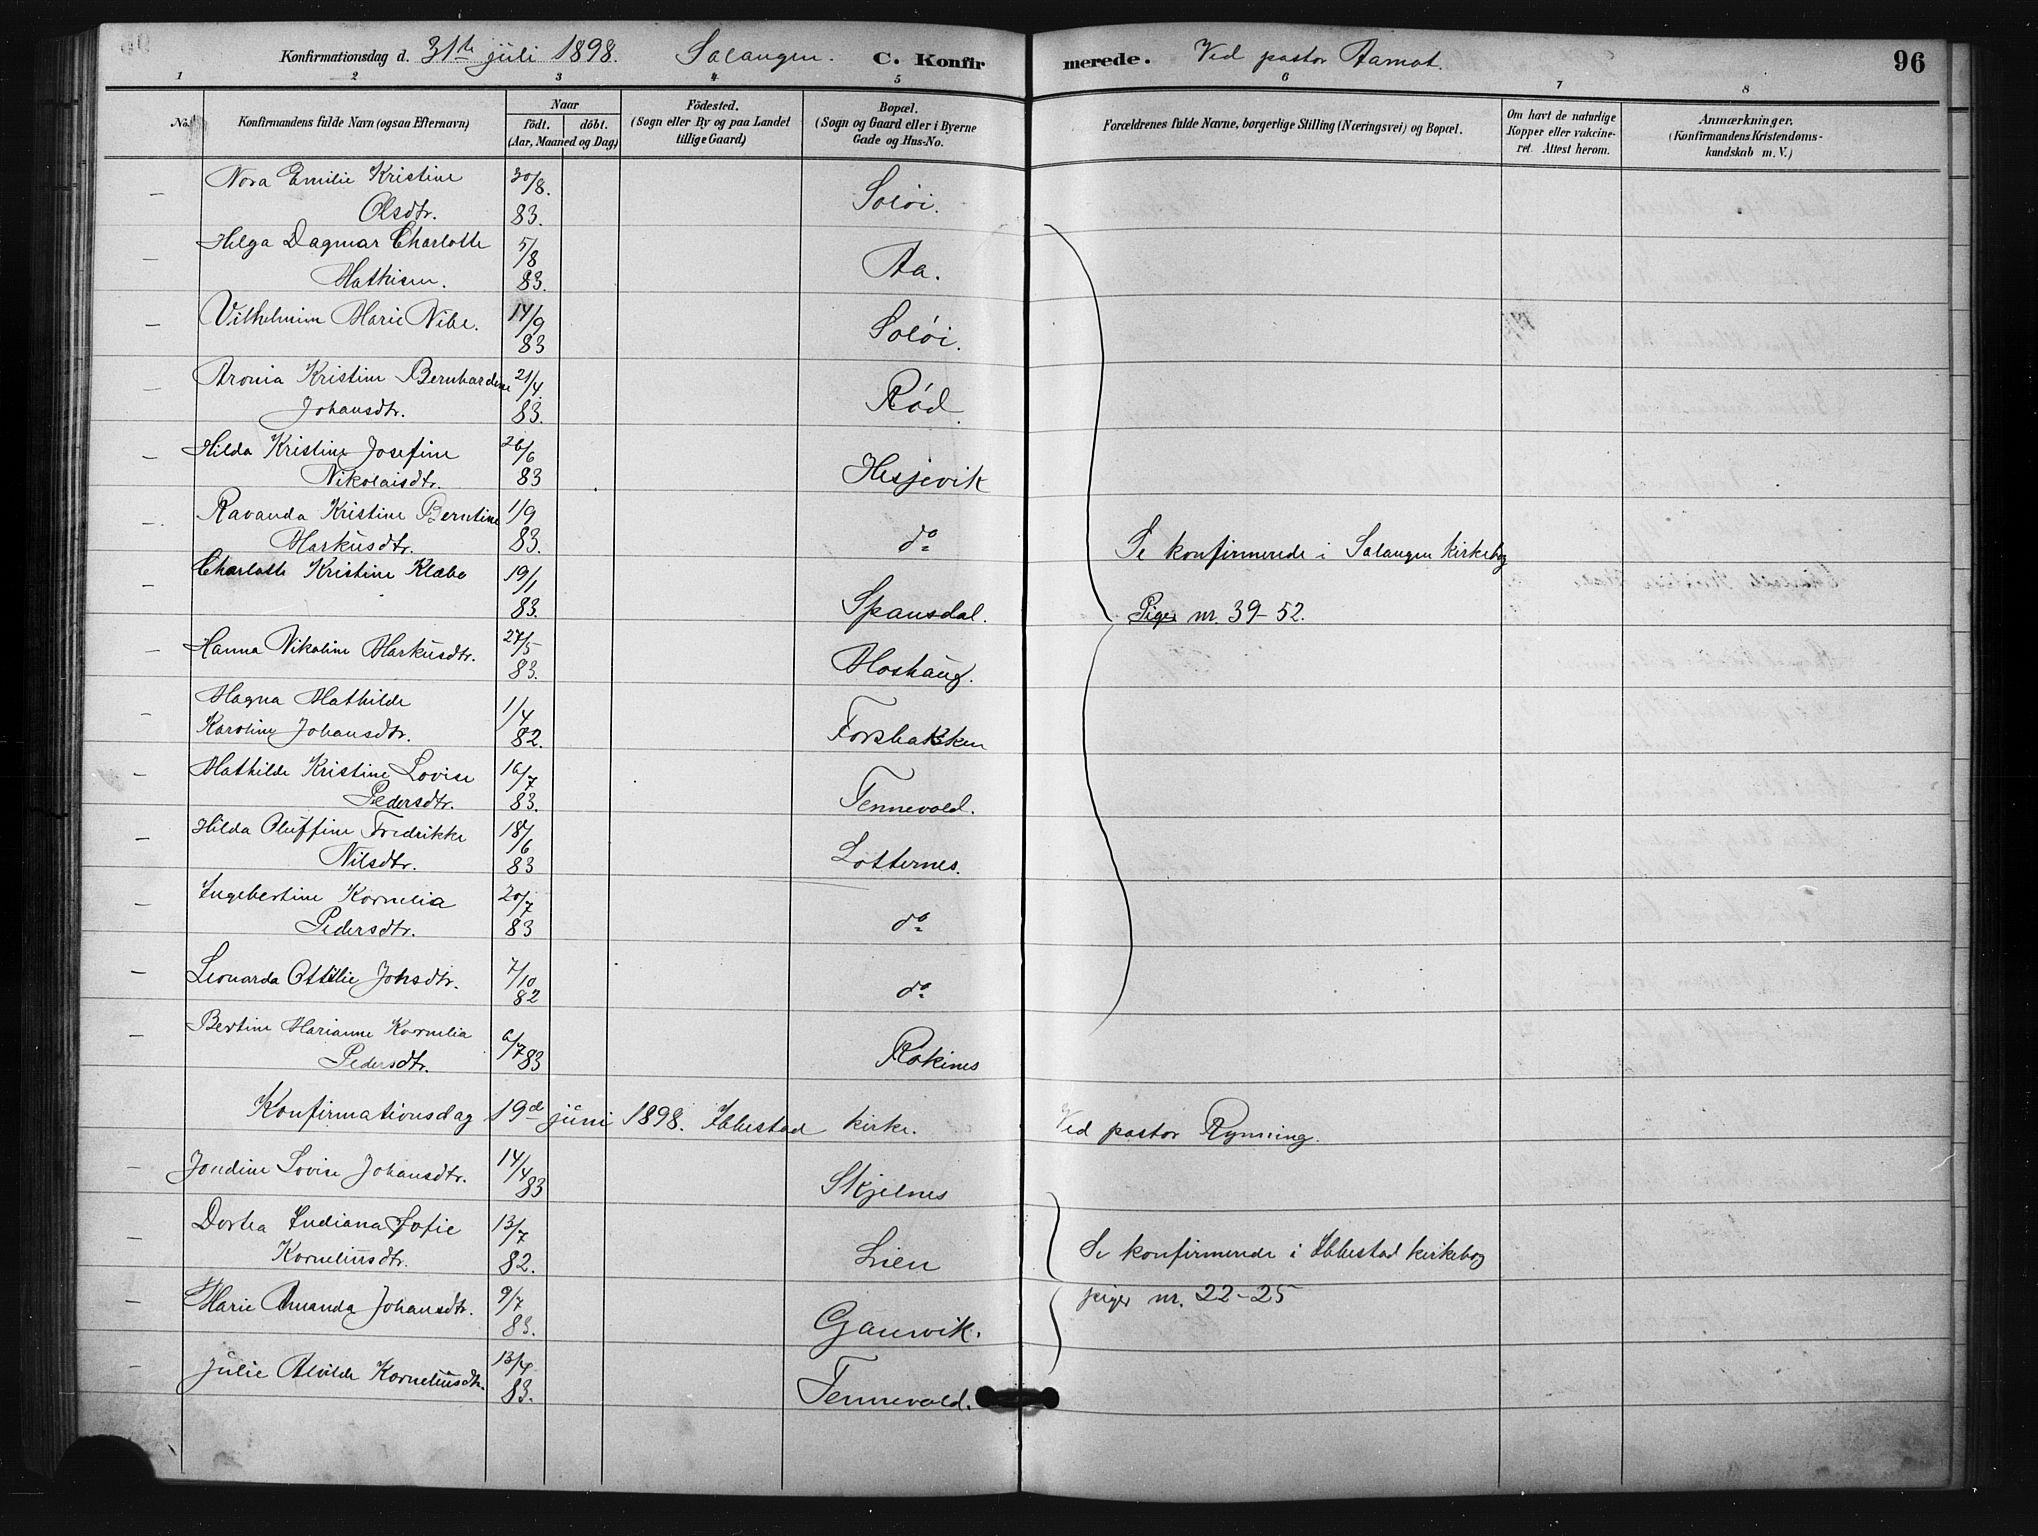 Konfirmationsdag d. 31te juli 1898. Salangen. C. Konfirmerede. Ved pastor Aamot. 96
1 2 3 4 5 6 7 8
No. Konfirmandens fulde Navn (ogsaa Efternavn)
Naar
født. døbt.
(Aar, Maaned og Dag)
Fødested.
(Sogn eller By og paa Landet
tillige Gaard)
Bopæl.
(Sogn og Gaard eller i Byerne
Gade og Hus-No.
Forældrenes fulde Navne, borgerlige Stilling (Næringsvei) og Bopæl.
Om havt de naturlige
Kopper eller vakcine-
ret. Attest herom.
Anmærkninger.
(Konfirmandens Kristendoms-
kundskab m. V.)
– Nora Emilie Kristine 30/8.
Olsdtr. 83. Soløi.
– Helga Dagmar Charlotte 5/8
Mathisen. 83. Aa.
– Vilhelmine Marie Nibe. 14/9
83 Soløi.
– Aronia Kristine Bernhardine 21/4.
Johansdtr. 83. Rød
– Hilda Kristine Josefine 26/6
Nikolaisdtr. 83 Hesjevik
– Ravanda Kristine Berntine 1/9
Markusdtr. 83. do
Se konfirmerede i Salangen kirkebog
– Charlotte Kristine Klæbo 19/1
83. Spansdal.
Piger nr. 39–52.
– Hanna Nikoline Markusdtr. 27/5
83. Moshaug.
– Magna Mathilde 1/4
Karoline Johansdtr. 82. Forsbakken
– Mathilde Kristine Lovise 16/7
Pedersdtr. 83. Tennevold.
– Hilda Oluffine Fredrikke 18/6
Nilsdtr. 83 Lotternes.
– Ingebertine Kornelia 20/7
Pedersdtr. 83 do
– Leonarda Ottilie Johsdtr. 7/10
82 do
– Bertine Marianne Kornelia 6/7 83
Pedersdtr. Rokines
Konfirmationsdag 19de juni 1898. Ibbestad kirke. Ved pastor Rynning.
– Jondine Lovise Johansdtr. 14/4 83 Skjelnes
– Dortea Indiana Sofie 13/7
Korneliusdtr. 82. Lien
Se konfirmerede i Ibbestad kirkebog
– Marie Amanda Johansdtr. 9/7
83. Gansvik.
piger nr. 22–25
– Julie Alvilde Korneliusdtr. 13/4
83. Tennevold.